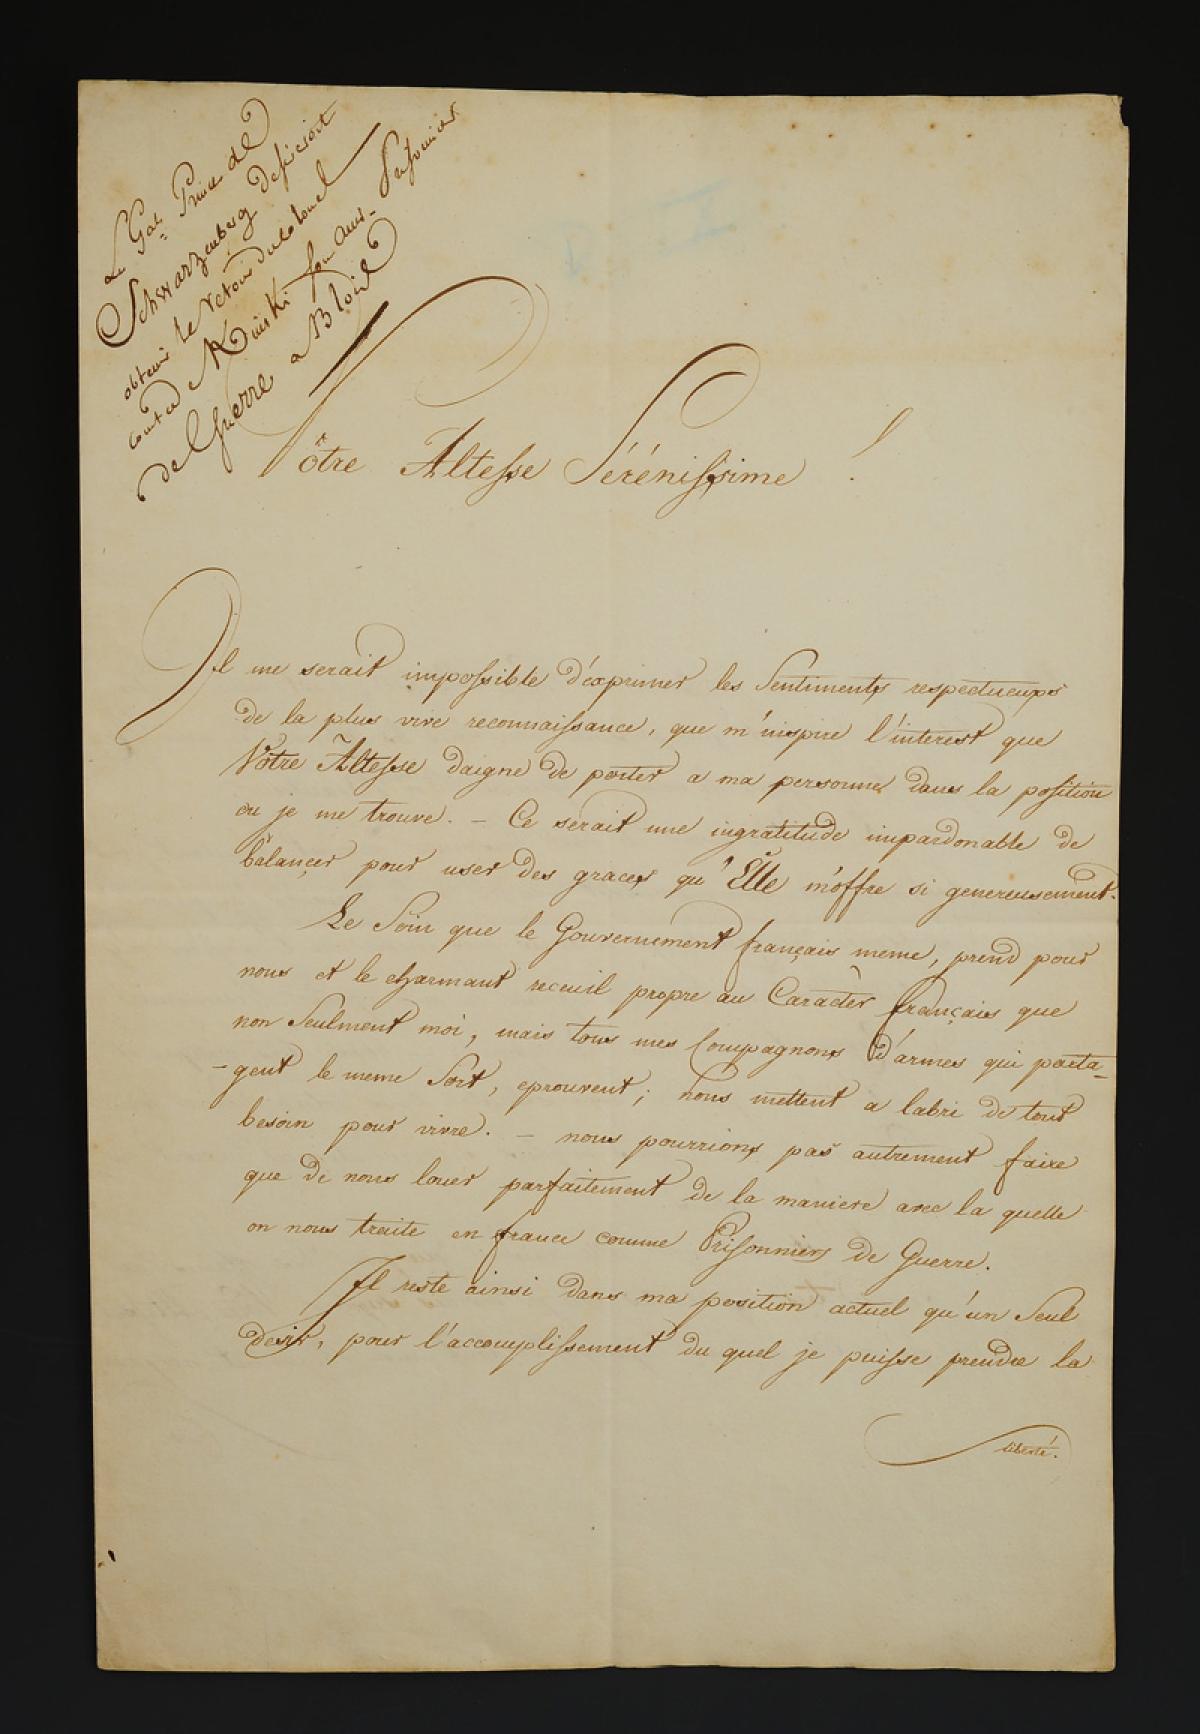 Le Gal. Prince de
Schwarzenberg desireroit
obtenir le retour du colonel
comte de Kinski son ami. Prisonnier
de Guerre a Blois
Vôtre Altesse Sérénissime !
Il me serait impossible d'exprimer les Sentiments respectueux
de la plus vive reconnaissance, que m'inspire l'interest que
Votre Altesse daigne de porter a ma personne dans la position
ou je me trouve. – Ce serait une ingratitude impardonable de
balançer pour user des graces qu'Elle m'offre si genereusement.
Le Soin que le Gouvernement français meme, prend pour
nous et le charmant receuil propre au Caractèr français que
non Seulment moi, mais tous mes Compagnons d'armes qui parta-
-gent le meme Sort, eprouvent; nous mettent a labri de tout
besoin pour vivre. – nous pourrions pas autrement faire
que de nous louer parfaitement de la maniere avec la quelle
on nous traite en france comme Prisonniers de Guerre.
Il reste ainsi dans ma position actuel qu'un Seul
desir, pour l'accomplissement du quel je puisse prendre la
liberté.